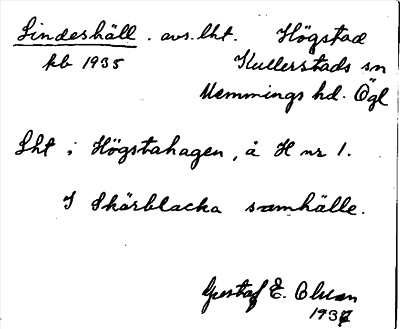 Lindeshäll . avs. lht. Högstad
kb 1935 Kullerstads sn
Memmings hd. Ögl
Lht i Högstahagen, å H nr 1.
I Skärblacka samhälle.
Gustaf E. Olson
1937